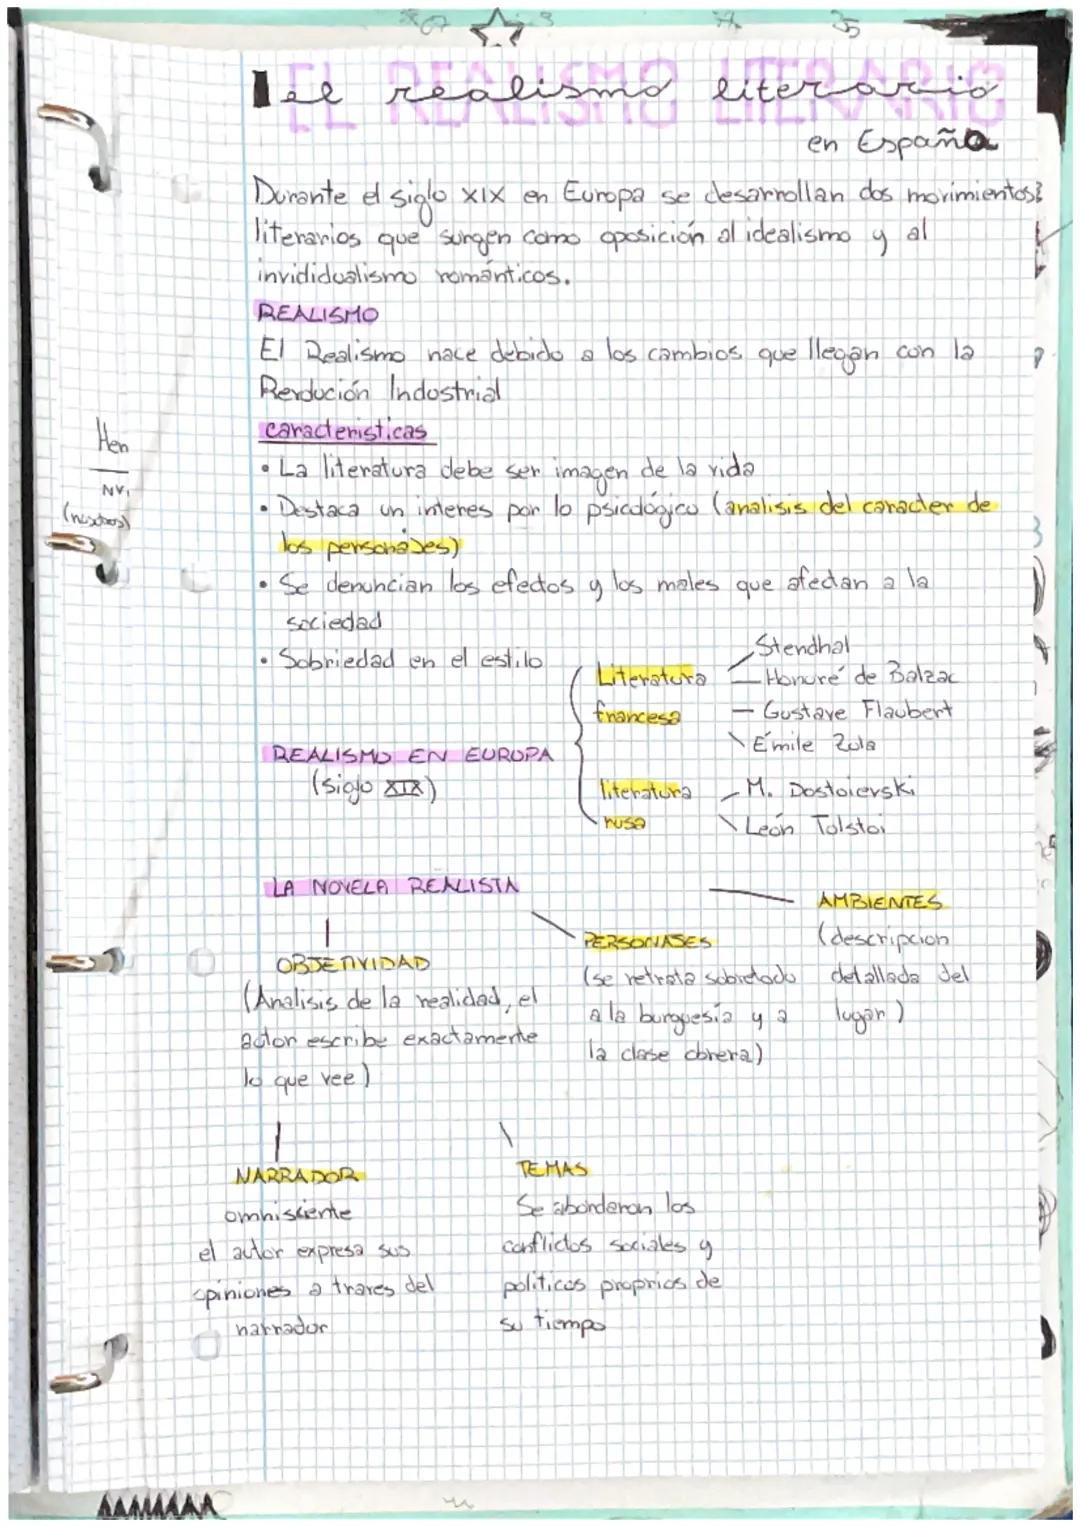 EL REALISMO LITERARIO
1 el realismo literario
en España
Durante el siglo XIX en Europa se desarrollan dos movimientos
literarios que surgen como oposición al idealismo y al
invididualismo románticos.
REALISMO
El Realismo nace debido a los cambios que llegan con la
Revolución Industrial
caracteristicas
• La literatura debe ser imagen de la vida
• Destaca un interes por lo psicológico (analisis del caracter de
los personajes)
• Se denuncian los efectos y los males que afectan a la
sociedad
• Sobriedad en el estilo
REALISMO EN EUROPA
(siglo XIX)
Literatura
francesa
Stendhal
Honoré de Balzac
Gustave Flaubert
Émile Zola
literatura
rusa
M. Dostoievski
León Tolstoi
LA NOVELA REALISTA
OBJETIVIDAD
(Analisis de la realidad, el
autor escribe exactamente
lo que vee)
PERSONAJES
(se retrata sobretodo
a la burguesía y a
la clase obrera)
AMBIENTES
(descripcion
detallada del
lugar)
NARRADOR
omnisciente
el autor expresa sus
opiniones a traves del
narrador
TEMAS
Se abordaron los
conflictos sociales y
politicos proprios de
su tiempo
Hen
NV,
(nosotros)
35